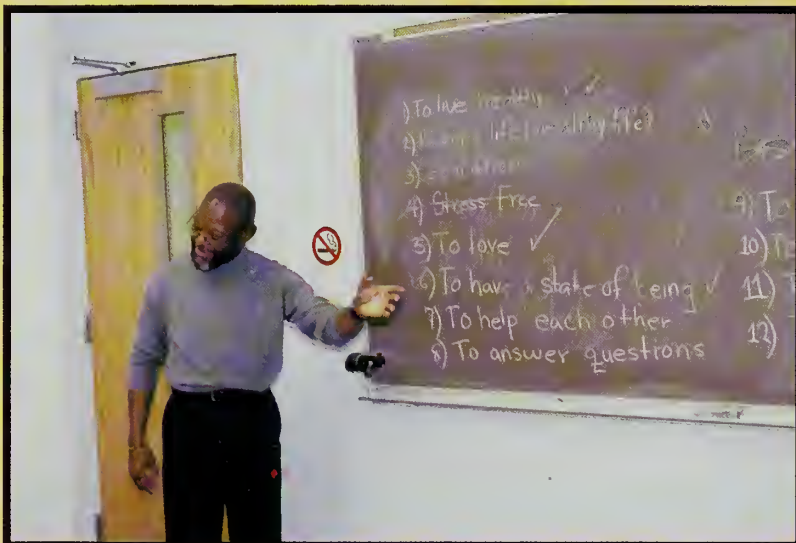 1) To live healthy ✓✓
2) life (wealthy life)
3)
4) Stress Free
5) To love ✓
6) To have state of being ✓
7) To help each other
8) To answer questions
9) To
10) To
11)
12)